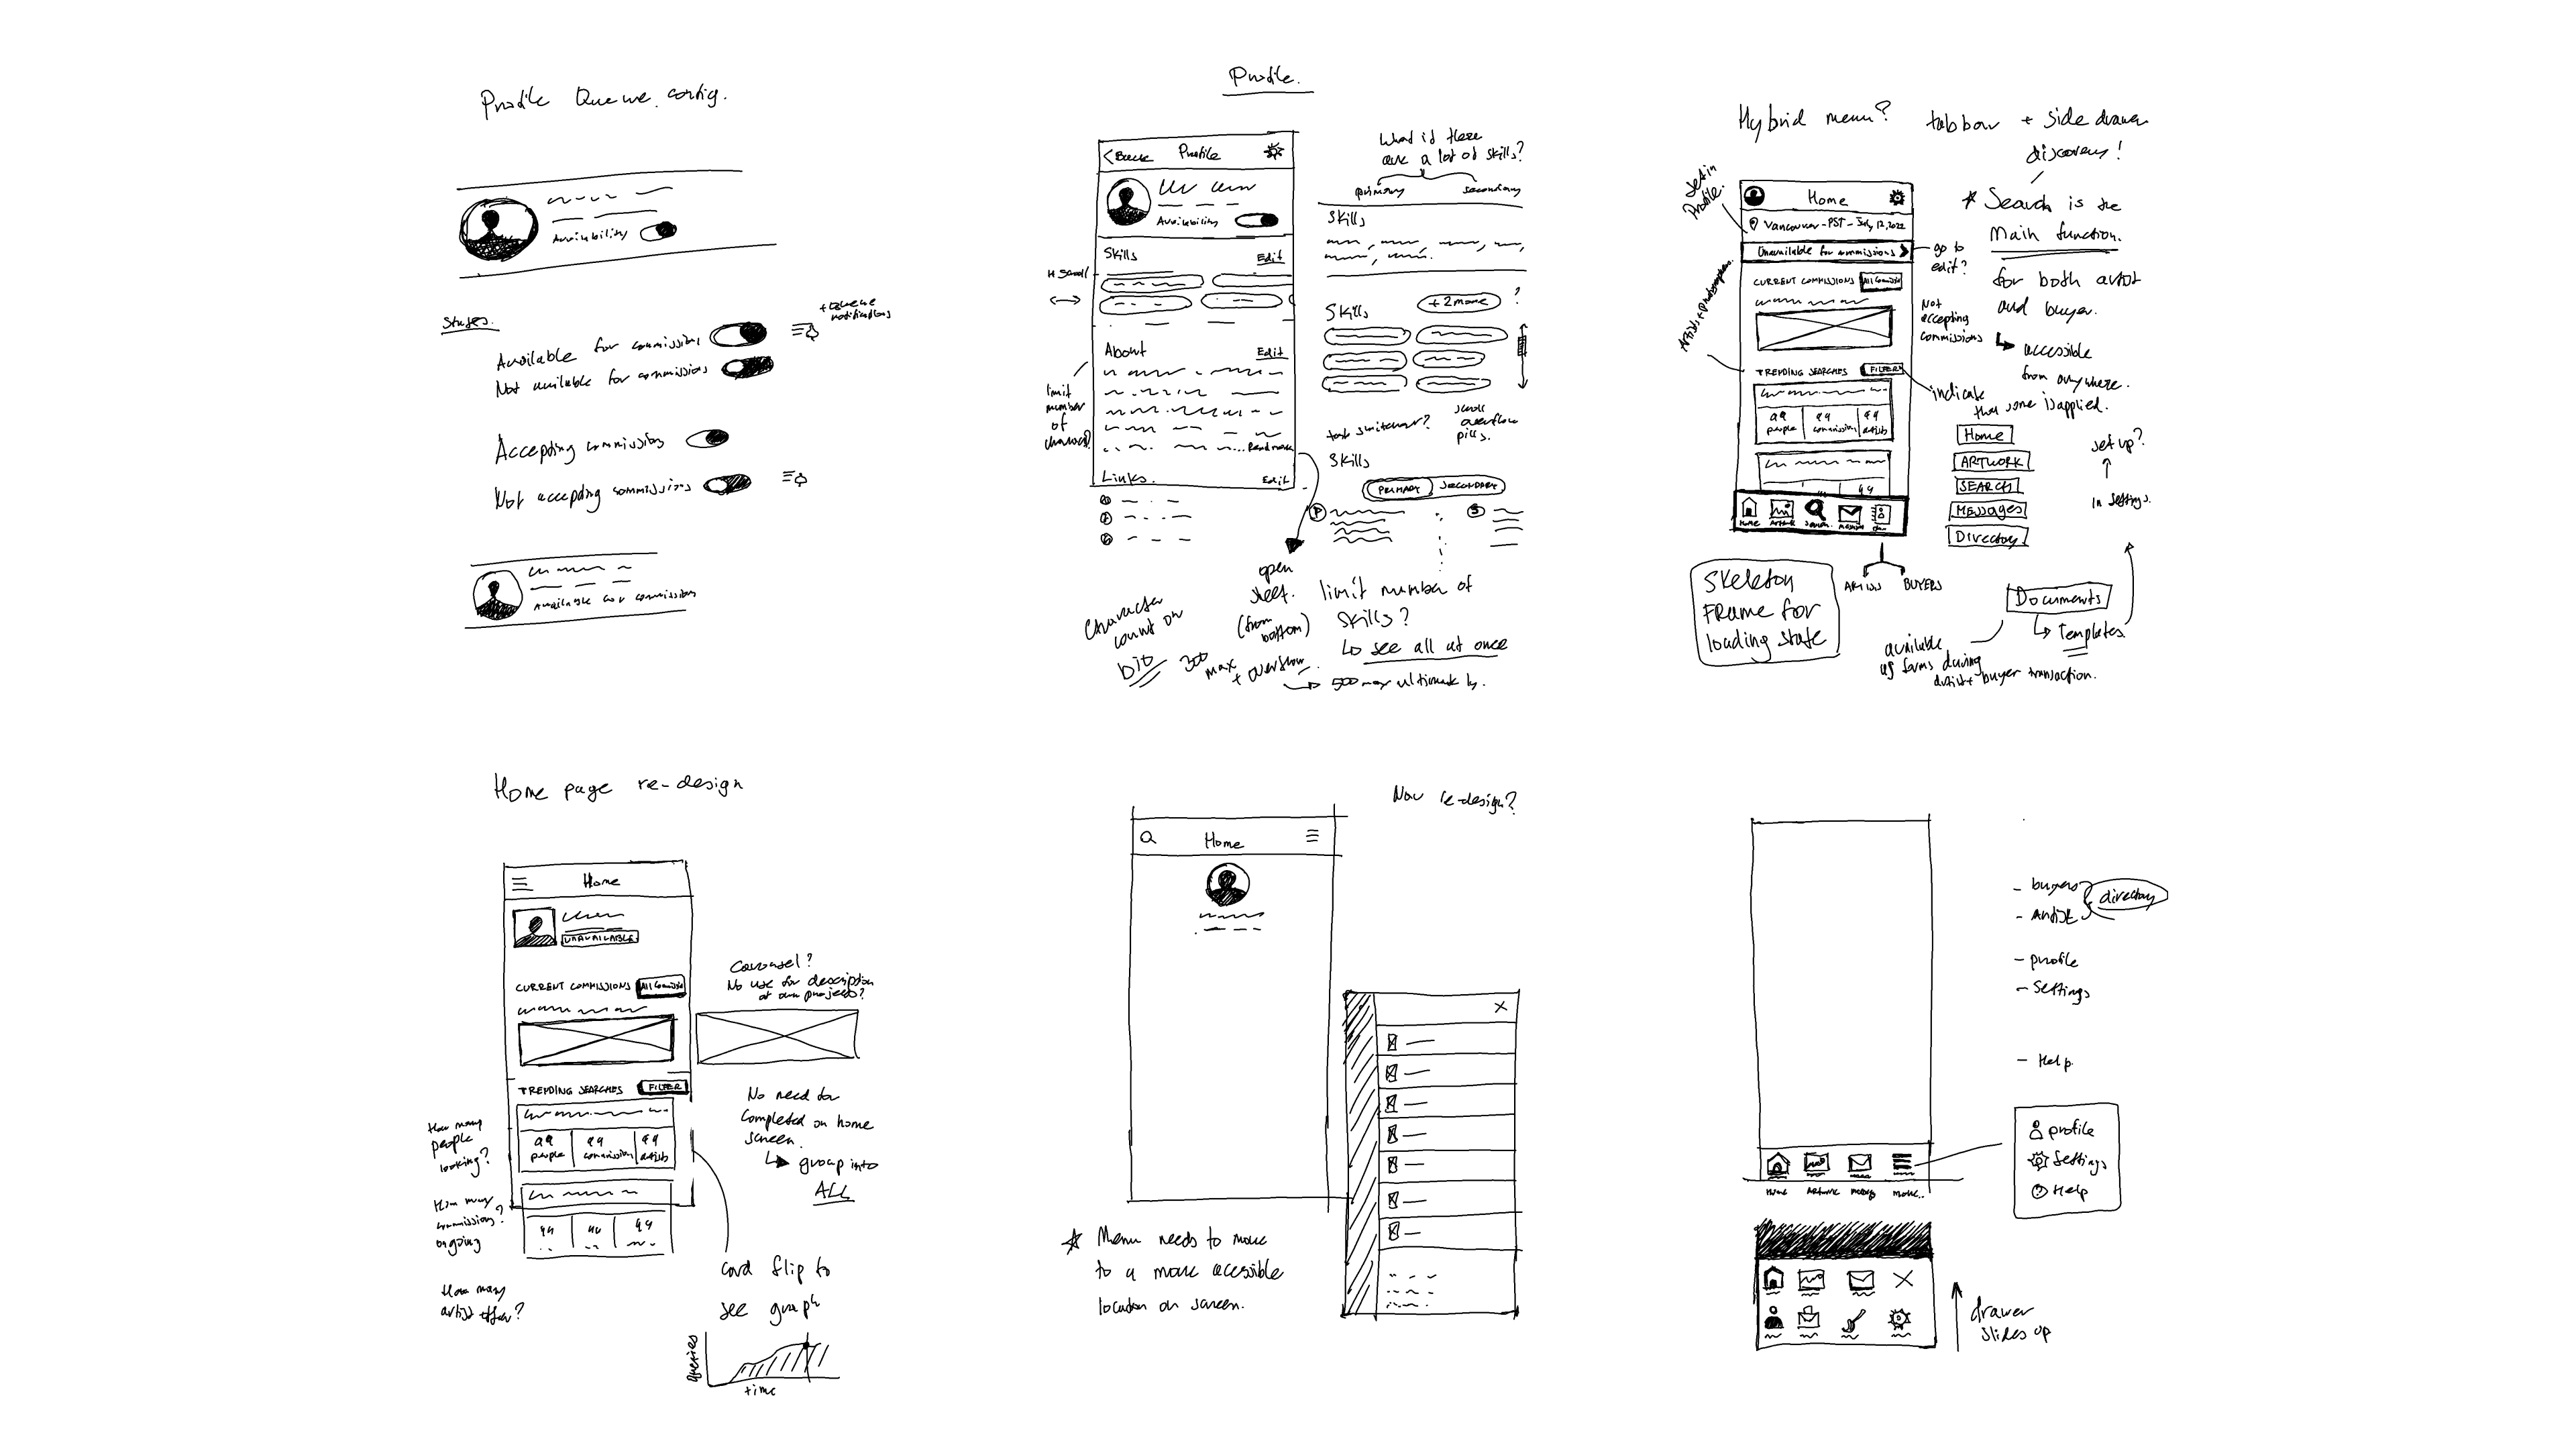 Profile Queue config.
Availability
States.
Available for commissions
+ Queue
notifications
Not available for commissions
Accepting commissions
Not accepting commissions
Available for commissions
Profile.
< Back Profile
Availability
Skills Edit
H scroll
About Edit
limit
number
of
... Read more
Links. Edit
What if there
are a lot of skills?
primary secondary
Skills
Skills +2 more ?
scroll
overflow
pills.
Skills
PRIMARY SECONDARY
P S
open
sheet.
(from
bottom)
Character
count on
bio 300
max
+ overflow.
500 max ultimately.
limit number of
skills?
to see all at once
Hybrid menu? tab bar + side drawer
discovery!
Set in
Profile.
Home
Vancouver - PST - July 12, 2022
Unavailable for commissions >
go to
edit?
CURRENT COMMISSIONS
Not
accepting
commissions
TRENDING SEARCHES FILTER
99 99 99
people commission artists
99
Home
* Search is the
Main function.
for both artist
and buyer.
accessible
from anywhere.
indicate
that some is applied.
Home
ARTWORK
SEARCH
Messages
Directory
set up?
in settings.
ARTISTS BUYERS
Skeleton
Frame for
loading state
Documents
Templates
available
as forms during
artist + buyer transaction.
Home page re-design
Home
UNAVAILABLE
CURRENT COMMISSIONS All Commissio
Carousel?
No use for description
of own projects?
TRENDING SEARCHES FILTER
99 99 99
people commission artists
99 99 99
How many
people
looking?
How many
commissions?
ongoing
How many
artist offer?
No need for
completed on home
screen.
group into
ALL
card flip to
see graph
queries
time
Nav re-design?
Home
X
* Menu needs to move
to a more acessible
location on screen.
- buyers
- Artist
directory
- profile
- Settings
- Help.
Home Artwork more..
profile
Settings
? Help
drawer
slides up